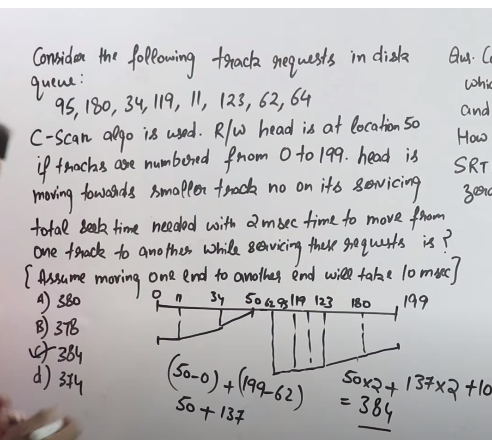 Consider the following track requests in disk
queue:
95, 180, 34, 119, 11, 123, 62, 64
C-Scan algo is used. R/W head is at location 50
if tracks are numbered from 0 to 199. head is
moving towards smaller track no on its servicing
total seek time needed with 2msec time to move from
one track to another while servicing these requests is?
[Assume moving one end to another end will take 10 msec]
A) 380
B) 378
c) 384
d) 374
0 11 34 50 62 95 119 123 180 199
(50-0) + (199-62)
50 + 137
50x2 + 137x2 + 10
= 384
Qus. C
whic
and
How
SRT
zero